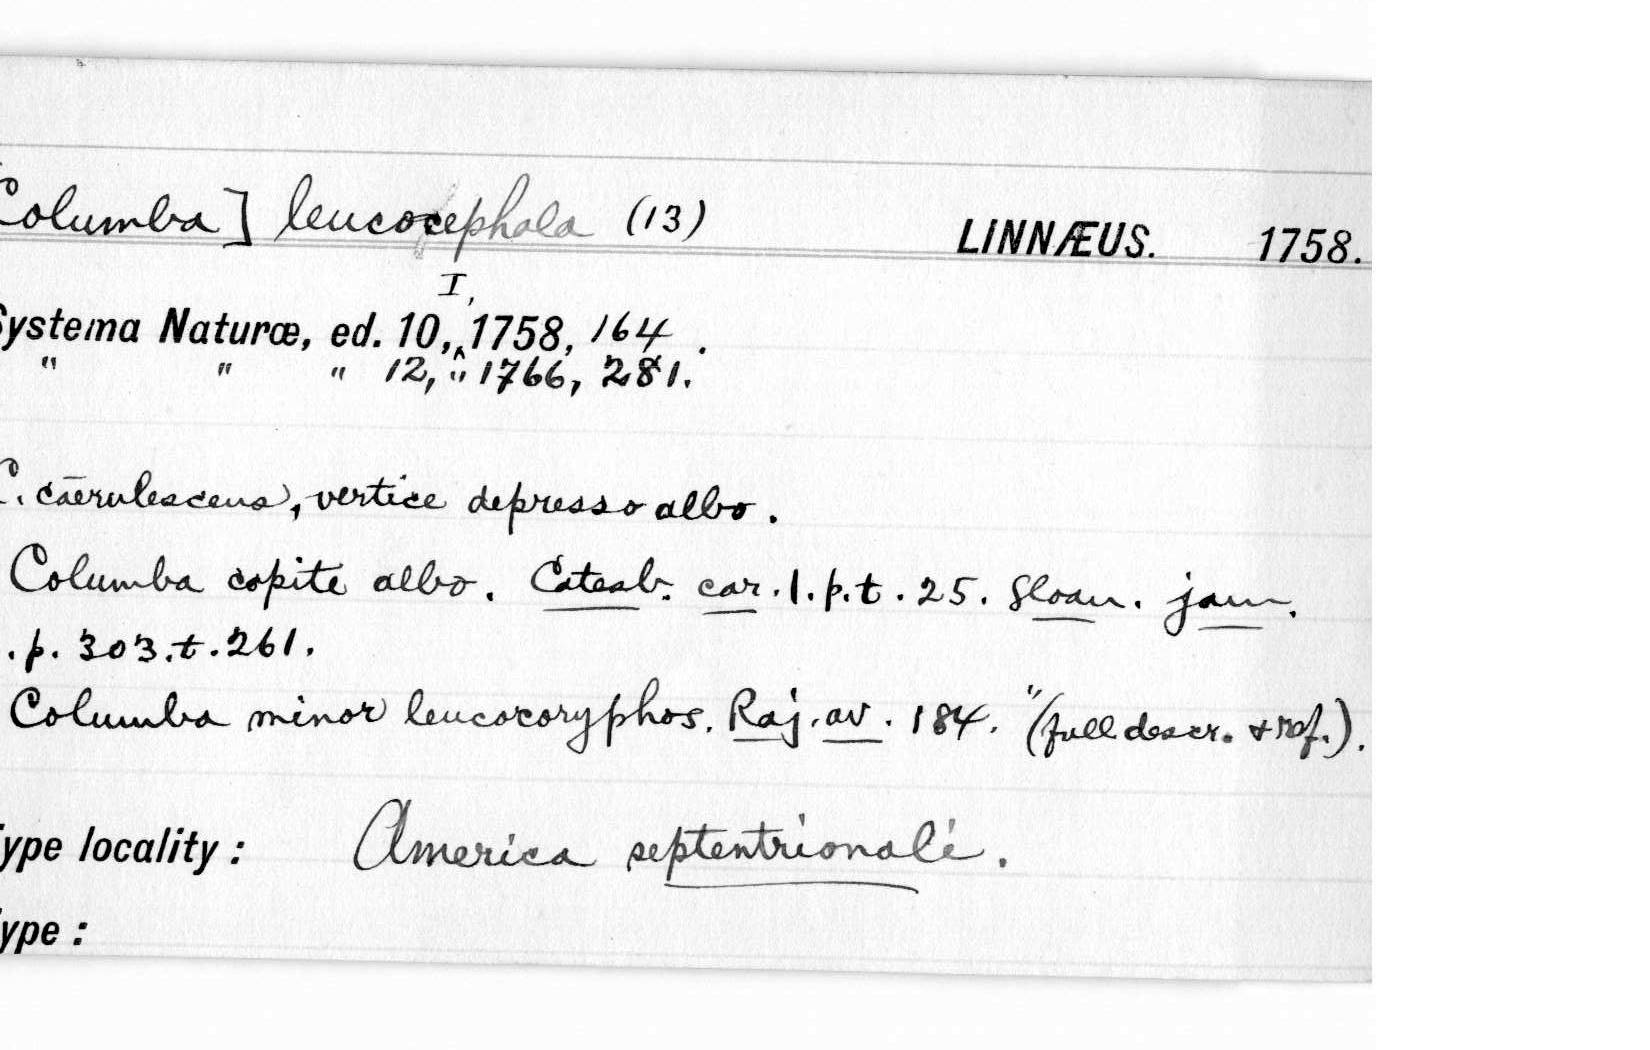 Columba] leucocephala (13) LINNÆUS. 1758.
I,
Systema Naturæ, ed. 10,^ 1758, 164.
" " " 12, " 1766, 281.
C. cærulescens, vertice depresso albo.
Columba capite albo. Catesb. car. 1. p. t. 25. Sloan. jam.
. p. 303. t. 261.
Columba minor leucocoryphos. Raj. av. 184. " (full descr. & ref.).
Type locality: America septentrionali.
Type: